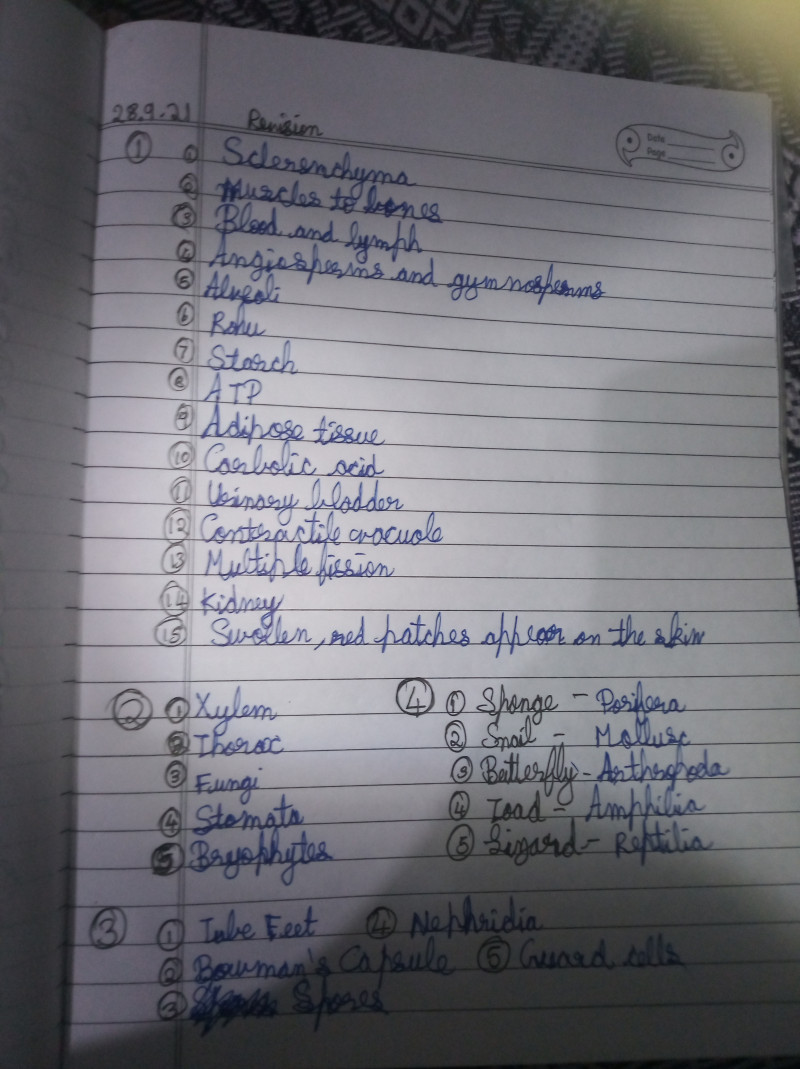 28.9.21 Revision
Date
Page
① ① Sclerenchyma
② Muscles to bones
③ Blood and lymph
④ Angiosperms and gymnosperms
⑤ Alveoli
⑥ Rohu
⑦ Starch
⑧ ATP
⑨ Adipose tissue
⑩ Carbolic acid
⑪ Urinary bladder
⑫ Contractile vacuole
⑬ Multiple fission
⑭ Kidney
⑮ Swollen, red patches appear on the skin
② ① Xylem
② Thorax
③ Fungi
④ Stomata
⑤ Bryophytes
④ ① Sponge - Porifera
② Snail - Mollusc
③ Butterfly - Arthropoda
④ Toad - Amphibia
⑤ Lizard - Reptilia
③ ① Tube Feet ④ Nephridia
② Bowman's Capsule ⑤ Guard cells
③ Spores